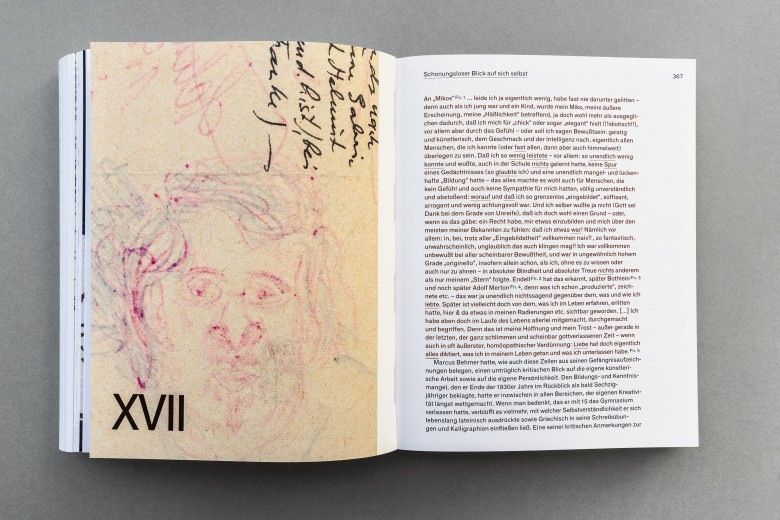 XVII
Schonungsloser Blick auf sich selbst
367
An „Mikos" Fn. 1 … leide ich ja eigentlich wenig, habe fast nie darunter gelitten –
denn auch als ich jung war und ein Kind, wurde mein Miko, meine äußere
Erscheinung, meine „Häßlichkeit" betreffend, ja doch wohl mehr als ausgegli-
chen dadurch, daß ich mich für „chick" oder sogar „elegant" hielt (!!idiotisch!!),
vor allem aber durch das Gefühl – oder soll ich sagen Bewußtsein: geistig
und künstlerisch, dem Geschmack und der Intelligenz nach, eigentlich allen
Menschen, die ich kannte (oder fast allen, dann aber auch himmelweit)
überlegen zu sein. Daß ich so wenig leistete – vor allem: so unendlich wenig
konnte und wußte, auch in der Schule nichts gelernt hatte, keine Spur
eines Gedächtnisses (so glaubte ich) und eine unendlich mangel- und lücken-
hafte „Bildung" hatte – das alles machte es wohl auch für Menschen, die
kein Gefühl und auch keine Sympathie für mich hatten, völlig unverständlich
und abstoßend: worauf und daß ich so grenzenlos „eingebildet", süffisant,
arrogant und wenig achtungsvoll war. Und ich selber wußte ja nicht (Gott sei
Dank bei dem Grade von Unreife), daß ich doch wohl einen Grund – oder,
wenn es das gäbe: ein Recht habe, mir etwas einzubilden und mich über den
meisten meiner Bekannten zu fühlen: daß ich etwas war! Nämlich vor
allem: in, bei, trotz aller „Eingebildetheit" vollkommen naiv!! , so fantastisch,
unwahrscheinlich, unglaublich das auch klingen mag!! Ich war vollkommen
unbewußt bei aller scheinbarer Bewußtheit, und war in ungewöhnlich hohem
Grade „originello", insofern allein schon, als ich, ohne es zu wissen oder
auch nur zu ahnen – in absoluter Blindheit und absoluter Treue nichts anderem
als nur meinem „Stern" folgte. Endell Fn. 2 hat das erkannt, später Bothlein Fn. 3
und noch später Adolf Merton Fn. 4, denn was ich schon „produzierte", zeich-
nete etc. – das war ja unendlich nichtssagend gegenüber dem, was und wie ich
lebte. Später ist vielleicht doch von dem, was ich im Leben erfahren, erlitten
hatte, hier & da etwas in meinen Radierungen etc. sichtbar geworden. […] Ich
habe eben doch im Laufe des Lebens allerlei mitgemacht, durchgemacht
und begriffen. Denn das ist meine Hoffnung und mein Trost – außer gerade in
der letzten, der ganz schlimmen und scheinbar gottverlassenen Zeit – wenn
auch in oft äußerster, homöopathischer Verdünnung: Liebe hat doch eigentlich
alles diktiert, was ich in meinem Leben getan und was ich unterlassen habe. Fn. 5
Marcus Behmer hatte, wie auch diese Zeilen aus seinen Gefängnisaufzeich-
nungen belegen, einen untrüglich kritischen Blick auf die eigene künstleri-
sche Arbeit sowie auf die eigene Persönlichkeit. Den Bildungs- und Kenntnis-
mangel, den er Ende der 1930er Jahre im Rückblick als bald Sechzig-
jähriger beklagte, hatte er inzwischen in allen Bereichen, der eigenen Kreativi-
tät längst wettgemacht. Wenn man bedenkt, dass er mit 15 das Gymnasium
verlassen hatte, verblüfft es vielmehr, mit welcher Selbstverständlichkeit er sich
lebenslang lateinisch ausdrückte sowie Griechisch in seine Schreibübun-
gen und Kalligraphien einfließen ließ. Eine seiner kritischen Anmerkungen zur